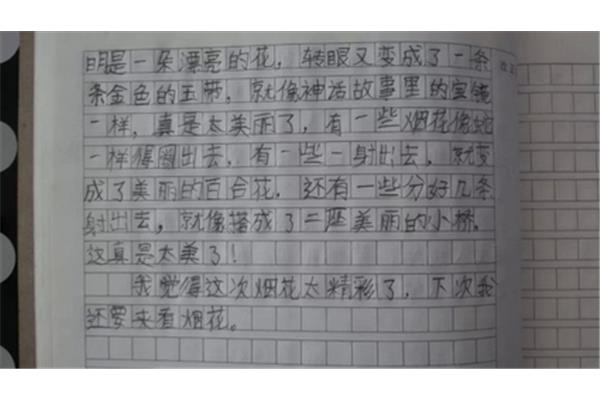 明是一朵漂亮的花，转眼又变成了一条
条金色的玉带，就像神话故事里的宝镜
一样，真是太美丽了，有一些烟花像蛇
一样得圈出去，有一些一身出去，就变
成了美丽的百合花，还有一些分好几条
射出去，就像搭成了二座美丽的小桥，
这真是太美了！
我觉得这次烟花太精彩了，下次我
还要来看烟花。